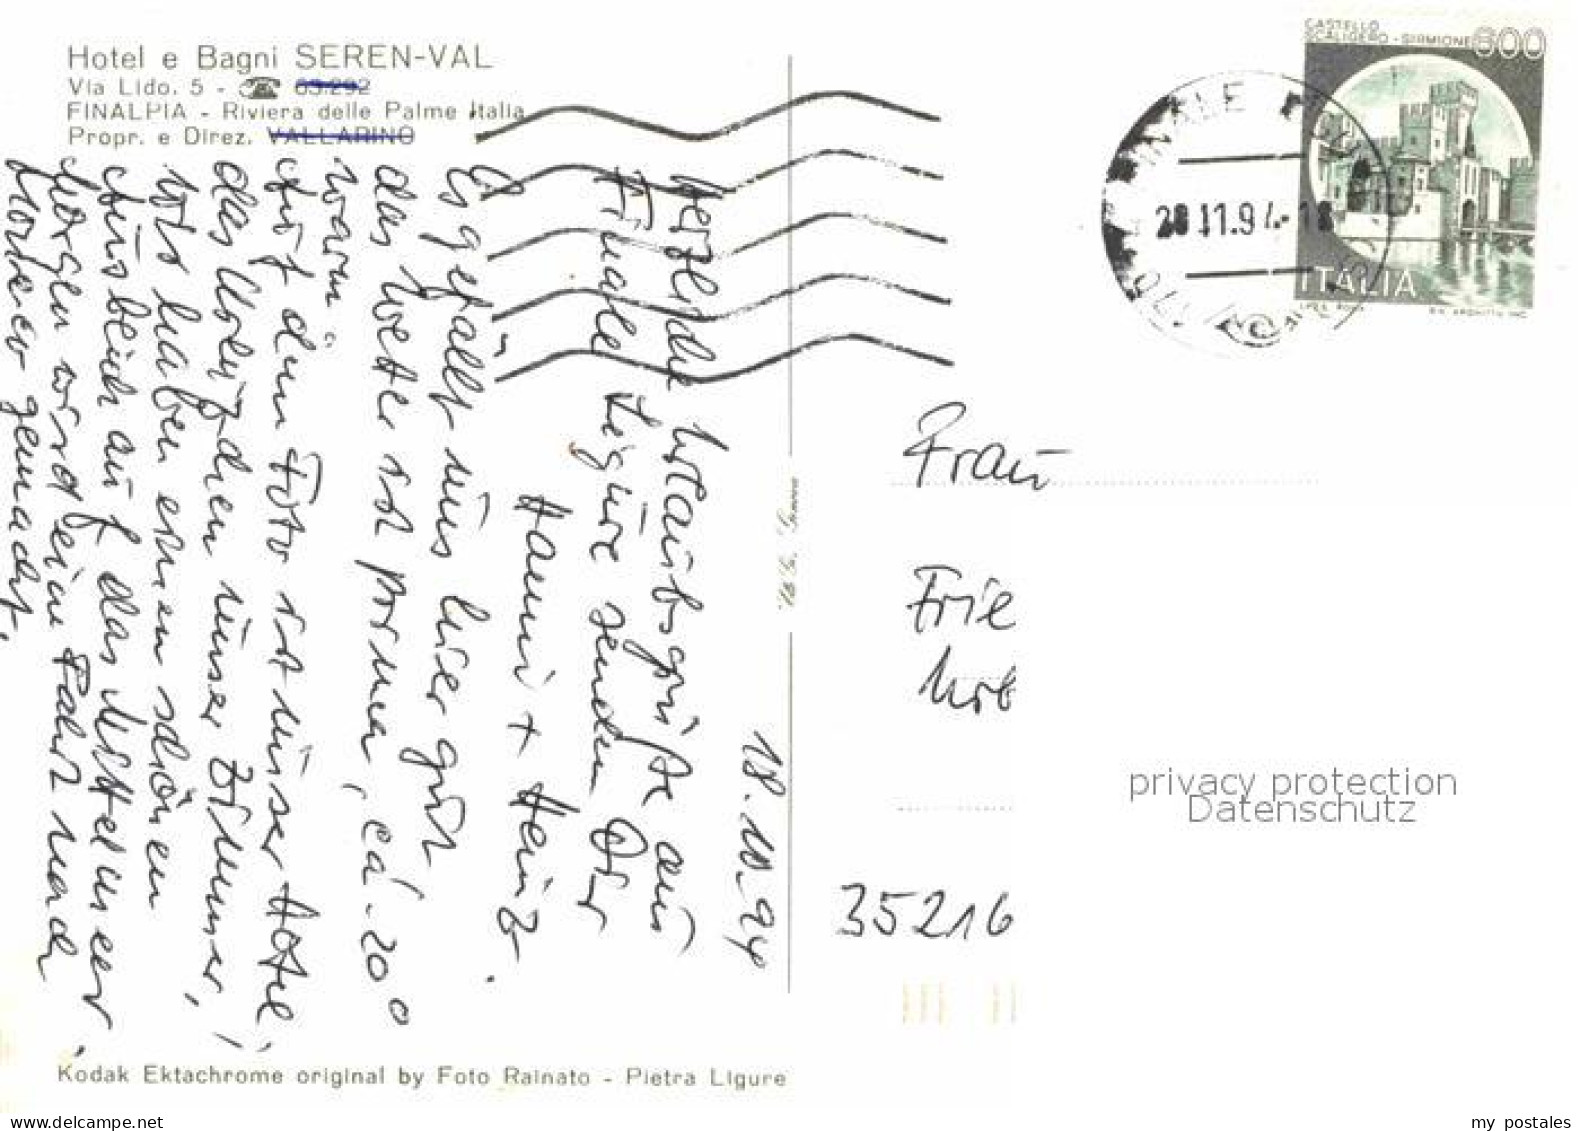 Hotel e Bagni SEREN-VAL
Via Lido. 5 - ☎ 63-292
FINALPIA - Riviera delle Palme Italia
Propr. e Direz. VALLARINO
18.10.94
Herzliche Urlaubsgrüße aus
Finale Ligure senden Dir
Hanni + Heinz.
Es gefällt uns hier gut
das Wetter ist prima, ca. 20°
warm.
Auf dem Foto ist unser Hotel,
das Kreuzchen unser Zimmer,
wir haben einen schönen
Ausblick auf das Mittelmeer.
Morgen wird eine Fahrt nach
Monaco gemacht.
Kodak Ektachrome original by Foto Rainato - Pietra Ligure
CASTELLO
SCALIGERO - SIRMIONE 600
ITALIA
Frau
Frie
35216
privacy protection
Datenschutz
my postales